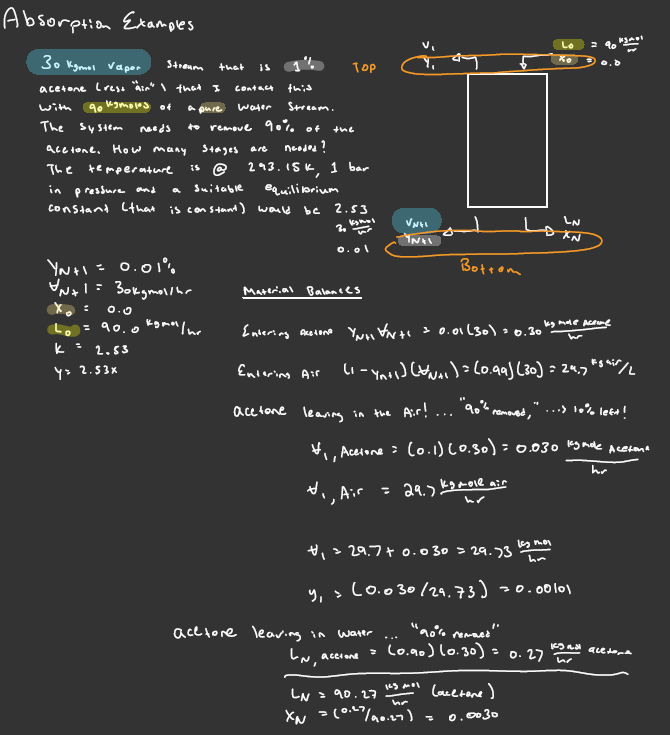 Absorption Examples
30 kgmol vapor stream that is 1%
acetone (rest "air") that I contact this
with 90 kgmoles of a pure water stream.
The system needs to remove 90% of the
acetone. How many stages are needed?
The temperature is @ 293.15K, 1 bar
in pressure and a suitable equilibrium
constant (that is constant) would be 2.53
TOP
V₁
y₁
L₀ = 90 kgmol/hr
X₀ = 0.0
V_N+1
30 kgmol/hr
y_N+1
0.01
L_N
X_N
Bottom
Y_N+1 = 0.01%
V_N+1 = 30kgmol/hr
X₀ = 0.0
L₀ = 90.0 kgmol/hr
K = 2.53
y = 2.53x
Material Balances
Entering Acetone Y_N+1 V_N+1 = 0.01(30) = 0.30 kgmole acetone/hr
Entering Air (1-y_N+1)(V_N+1) = (0.99)(30) = 29.7 kg air/L
acetone leaving in the Air! ... "90% removed," ...> 10% left!
V₁, Acetone = (0.1)(0.30) = 0.030 kgmole Acetone/hr
V₁, Air = 29.7 kgmole air/hr
V₁ = 29.7 + 0.030 = 29.73 kgmol/hr
y₁ = (0.030/29.73) = 0.00101
acetone leaving in water ... "90% removed"
L_N, acetone = (0.90)(0.30) = 0.27 kgmol/hr acetone
L_N = 90.27 kgmol/hr (acetone)
X_N = (0.27/90.27) = 0.0030